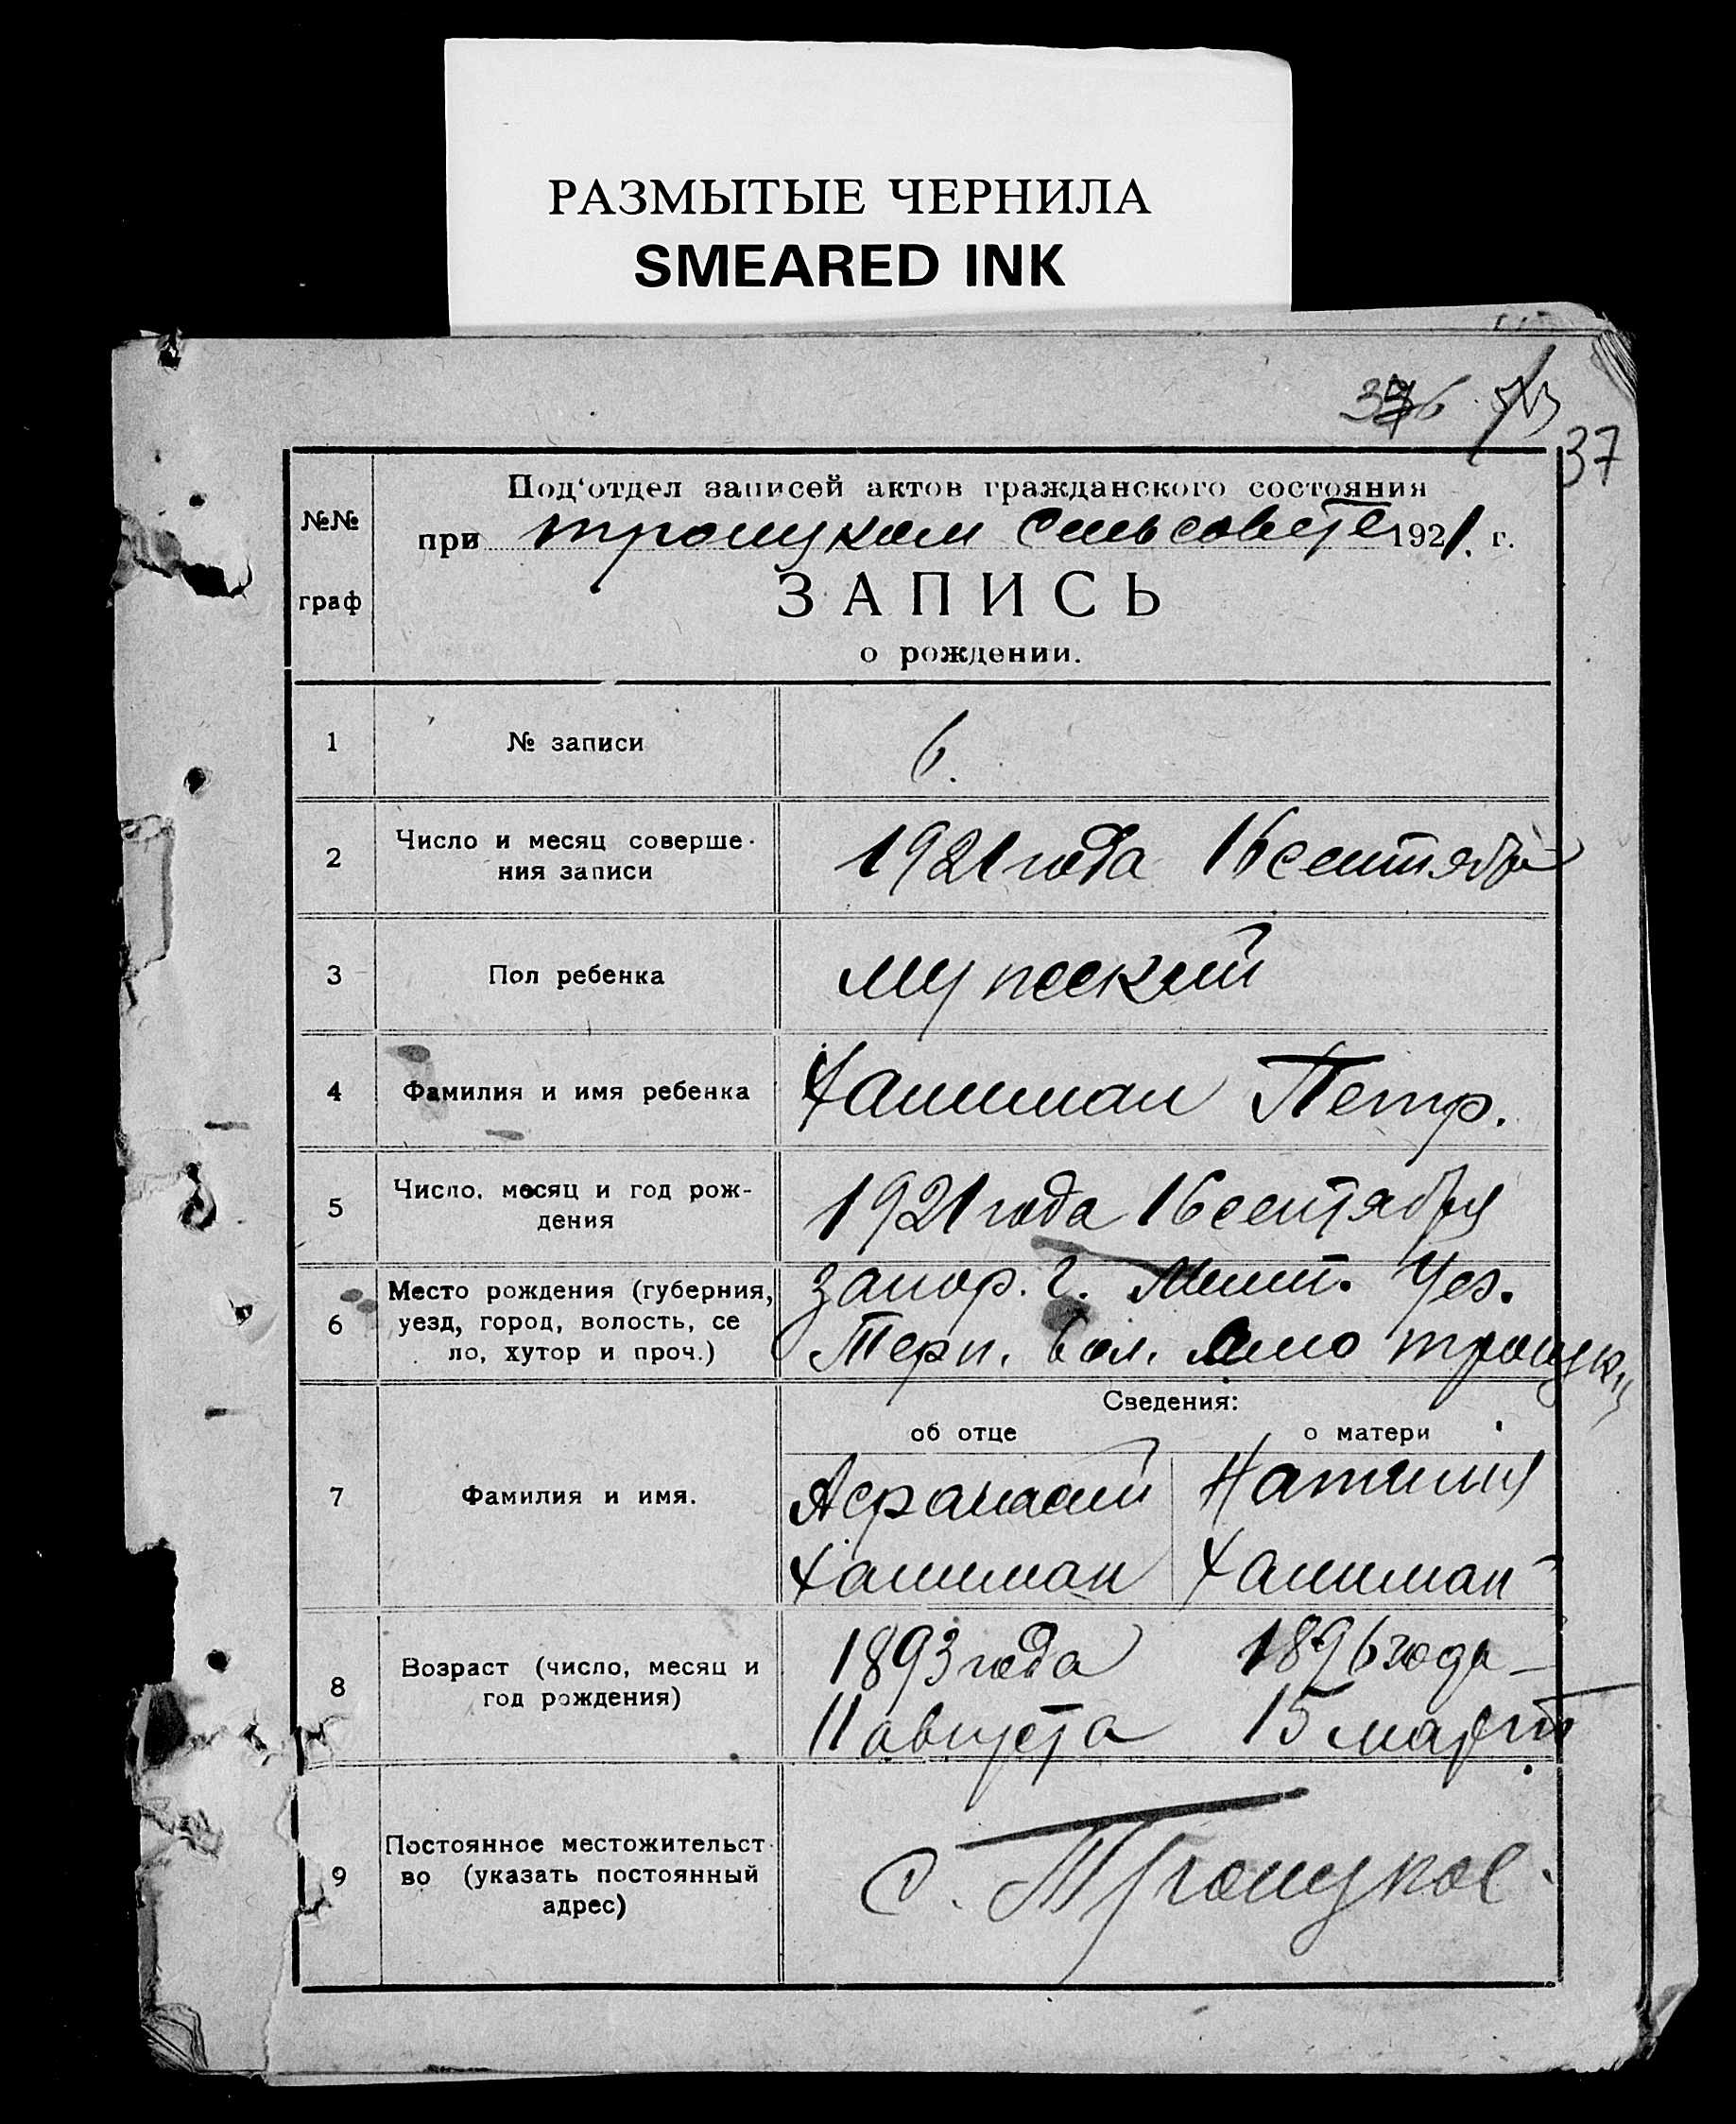 РАЗМЫТЫЕ ЧЕРНИЛА
SMEARED INK
37
№№ граф
Под'отдел записей актов гражданского состояния
при троицком сельсовете 1921. г.
ЗАПИСЬ
о рождении.
1 № записи 6.
2 Число и месяц соверше-
ния записи
1921 года 16 сентября
3 Пол ребенка мупеский
4 Фамилия и имя ребенка Петр.
5 Число, месяц и год рож-
дения
1921 года 16 сентября
6 Место рождения (губерния,
уезд, город, волость, се
ло, хутор и проч.)
Запор. г. Мелит. Уез.
Терп. вол. село
Сведения:
об отце о матери
7 Фамилия и имя.
Афанасий Наталия
8 Возраст (число, месяц и
год рождения)
1893 года 1896 года
11 августа 15 март
9 Постоянное местожительст-
во (указать постоянный
адрес)
с. Троицкое